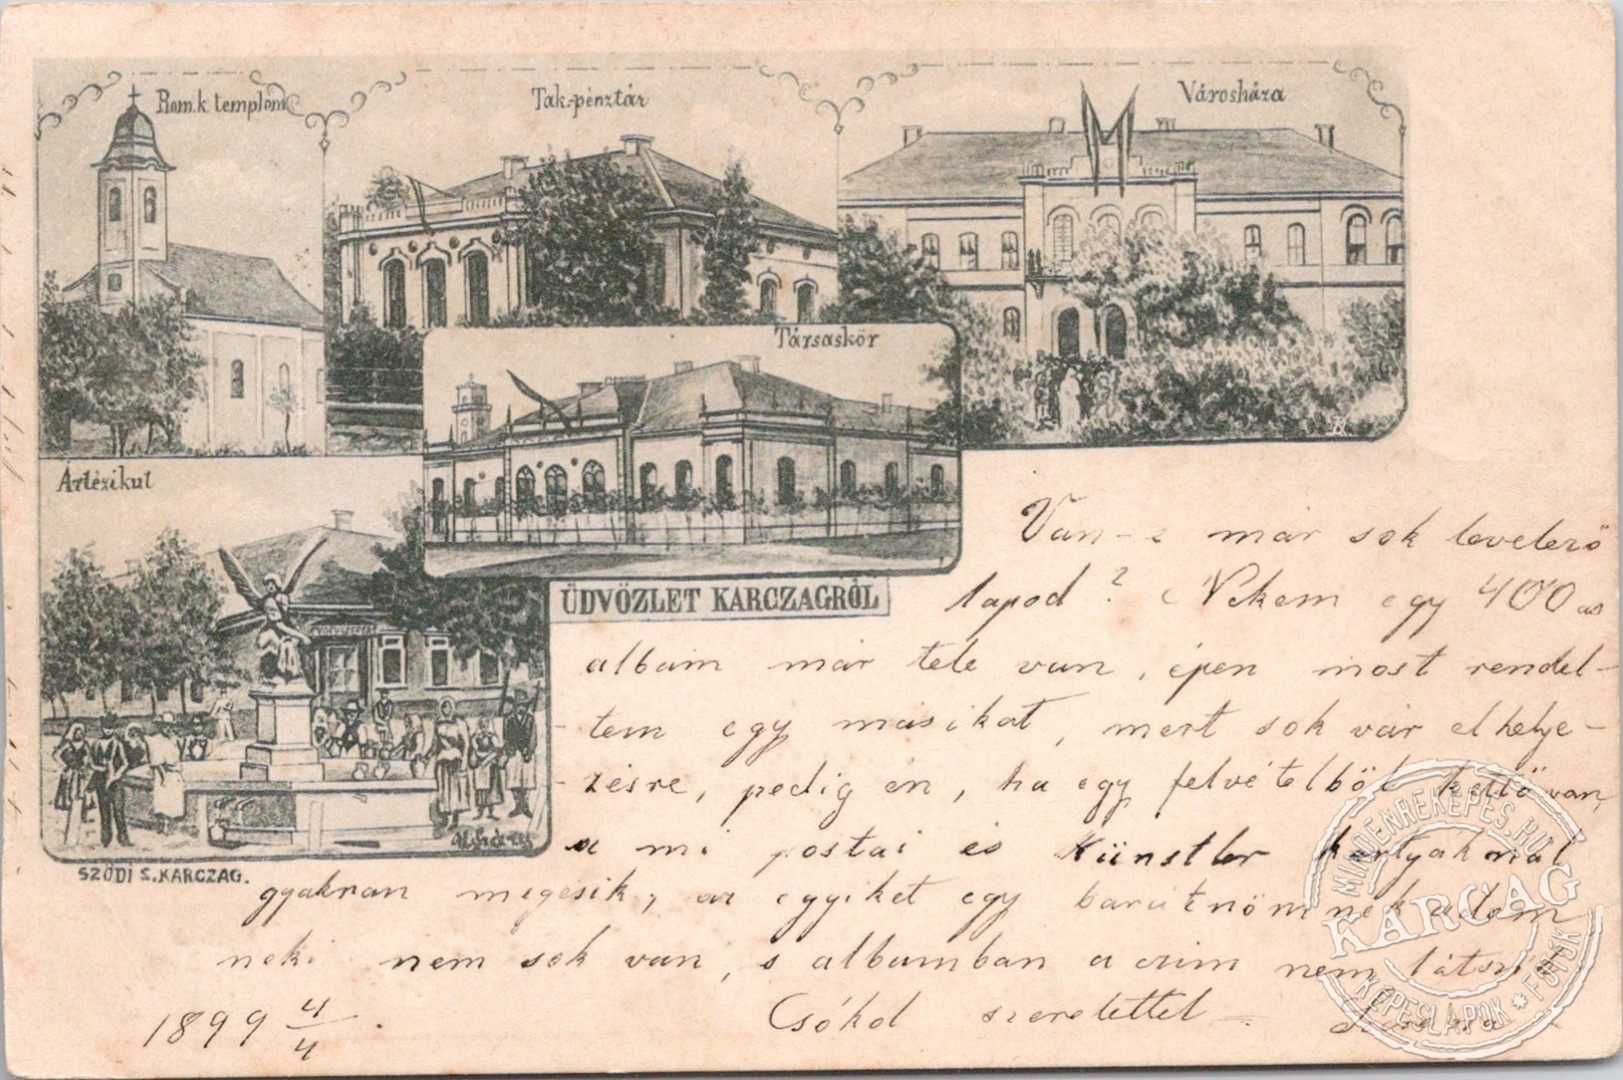 Rom.k. templom
Tak-pénztár
Városháza
Társaskör
Artézikut
ÜDVÖZLET KARCZAGRÓL
SZŐDI S. KARCZAG.
Van-e már sok levelező
lapod? Nekem egy 400 as
album már tele van, épen most rendel-
tem egy másikat, mert sok vár elhelye-
zésre, pedig én, ha egy felvételből kettő van,
a mi postai és Künstler kártyáknál
gyakran megesik, az egyiket egy barátnőmnek adom
neki nem sok van, s albumban a czim nem látszik
Csókol szeretettel
1899 4/4.
MINDENREKEPES.HU
KARCAG
KÉPESLAPOK * FOTÓK